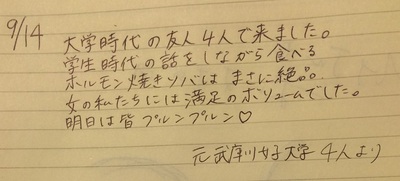 9/14
大学時代の友人4人で来ました。
学生時代の話をしながら食べる
ホルモン焼きソバは まさに絶品。
女の私たちには満足のボリュームでした。
明日は皆プルンプルン♡
元 武庫川女子大学 4人より